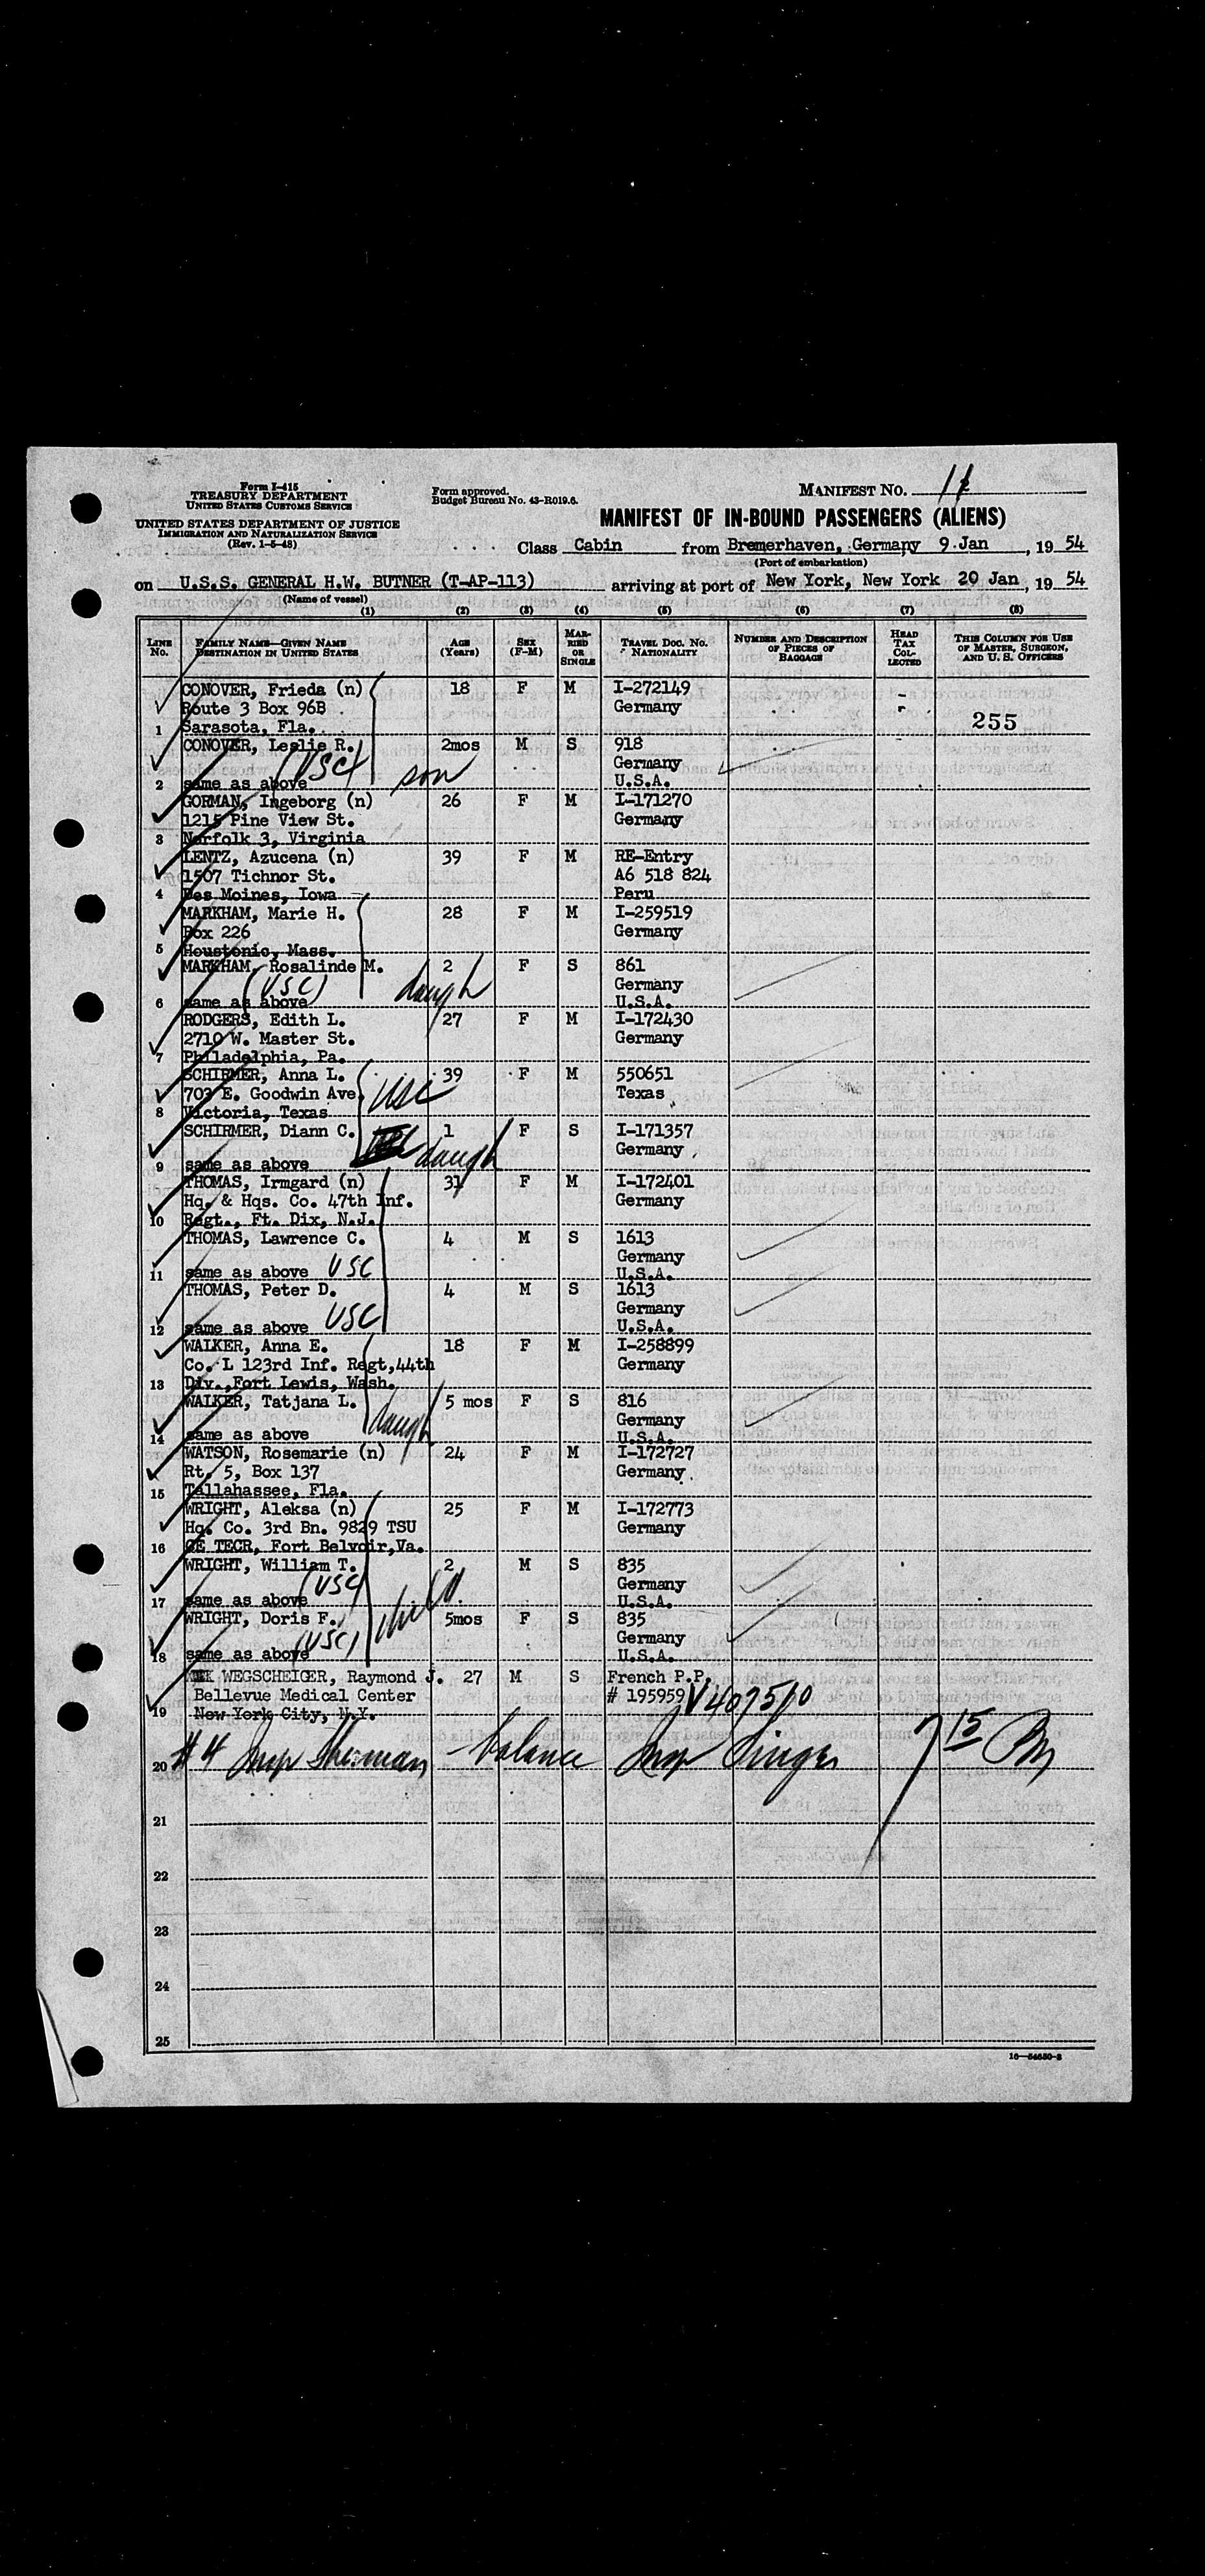 Form I-415
TREASURY DEPARTMENT
UNITED STATES CUSTOMS SERVICE
UNITED STATES DEPARTMENT OF JUSTICE
IMMIGRATION AND NATURALIZATION SERVICE
(Rev. 1-5-48)
Form approved.
Budget Bureau No. 43-R019.6.
MANIFEST NO.
MANIFEST OF IN-BOUND PASSENGERS (ALIENS)
Class Cabin from Bremerhaven, Germany 9 Jan, 19 54
(Port of embarkation)
on U.S.S. GENERAL H.W. BUTNER (T-AP-113) arriving at port of New York, New York 20 Jan, 19 54
(Name of vessel)
(1) (2) (3) (4) (5) (6) (7) (8)
LINE NO. FAMILY NAME—GIVEN NAME DESTINATION IN UNITED STATES AGE (Years) SEX (F-M) MARRIED OR SINGLE TRAVEL DOC. NO. NATIONALITY NUMBER AND DESCRIPTION OF PIECES OF BAGGAGE HEAD TAX COLLECTED THIS COLUMN FOR USE OF MASTER, SURGEON, AND U. S. OFFICERS
CONOVER, Frieda (n) 18 F M I-272149
Route 3 Box 96B Germany
1 Sarasota, Fla. 255
CONOVER, Leslie R. 2mos M S 918
(USC) son Germany
2 same as above U.S.A.
GORMAN, Ingeborg (n) 26 F M I-171270
1215 Pine View St. Germany
3 Norfolk 3, Virginia
LENTZ, Azucena (n) 39 F M RE-Entry
1507 Tichnor St. A6 518 824
4 Des Moines, Iowa Peru
MARKHAM, Marie H. 28 F M I-259519
Box 226 Germany
5 Houstonic, Mass.
MARKHAM, Rosalinde M. 2 F S 861
(USC) daugh Germany
6 same as above U.S.A.
RODGERS, Edith L. 27 F M I-172430
2710 W. Master St. Germany
7 Philadelphia, Pa.
SCHIRMER, Anna L. 39 F M 550651
703 E. Goodwin Ave. USC Texas
8 Victoria, Texas
SCHIRMER, Diann C. 1 F S I-171357
daugh Germany
9 same as above
THOMAS, Irmgard (n) 31 F M I-172401
Hq. & Hqs. Co. 47th Inf. Germany
10 Regt., Ft. Dix, N.J.
THOMAS, Lawrence C. 4 M S 1613
Germany
11 same as above USC U.S.A.
THOMAS, Peter D. 4 M S 1613
Germany
12 same as above USC U.S.A.
WALKER, Anna E. 18 F M I-258899
Co. L 123rd Inf. Regt,44th Germany
13 Div.,Fort Lewis, Wash.
WALKER, Tatjana L. 5 mos F S 816
daugh Germany
14 same as above U.S.A.
WATSON, Rosemarie (n) 24 F M I-172727
Rt. 5, Box 137 Germany
15 Tallahassee, Fla.
WRIGHT, Aleksa (n) 25 F M I-172773
Hq. Co. 3rd Bn. 9829 TSU Germany
16 CE TECR, Fort Belvoir,Va.
WRIGHT, William T. 2 M S 835
(USC) Germany
17 same as above U.S.A.
WRIGHT, Doris F. 5mos F S 835
(USC) Germany
18 same as above U.S.A.
WEGSCHEIGER, Raymond J. 27 M S French P.P.
Bellevue Medical Center # 195959 V407510
19 New York City, N.Y.
20 #4 Insp Sherman - balance Insp Singer 7 15 Pm
21
22
23
24
25